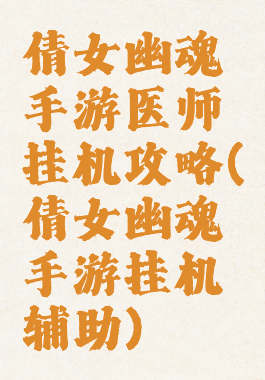 倩女幽魂
手游医师
挂机攻略(
倩女幽魂
手游挂机
辅助)